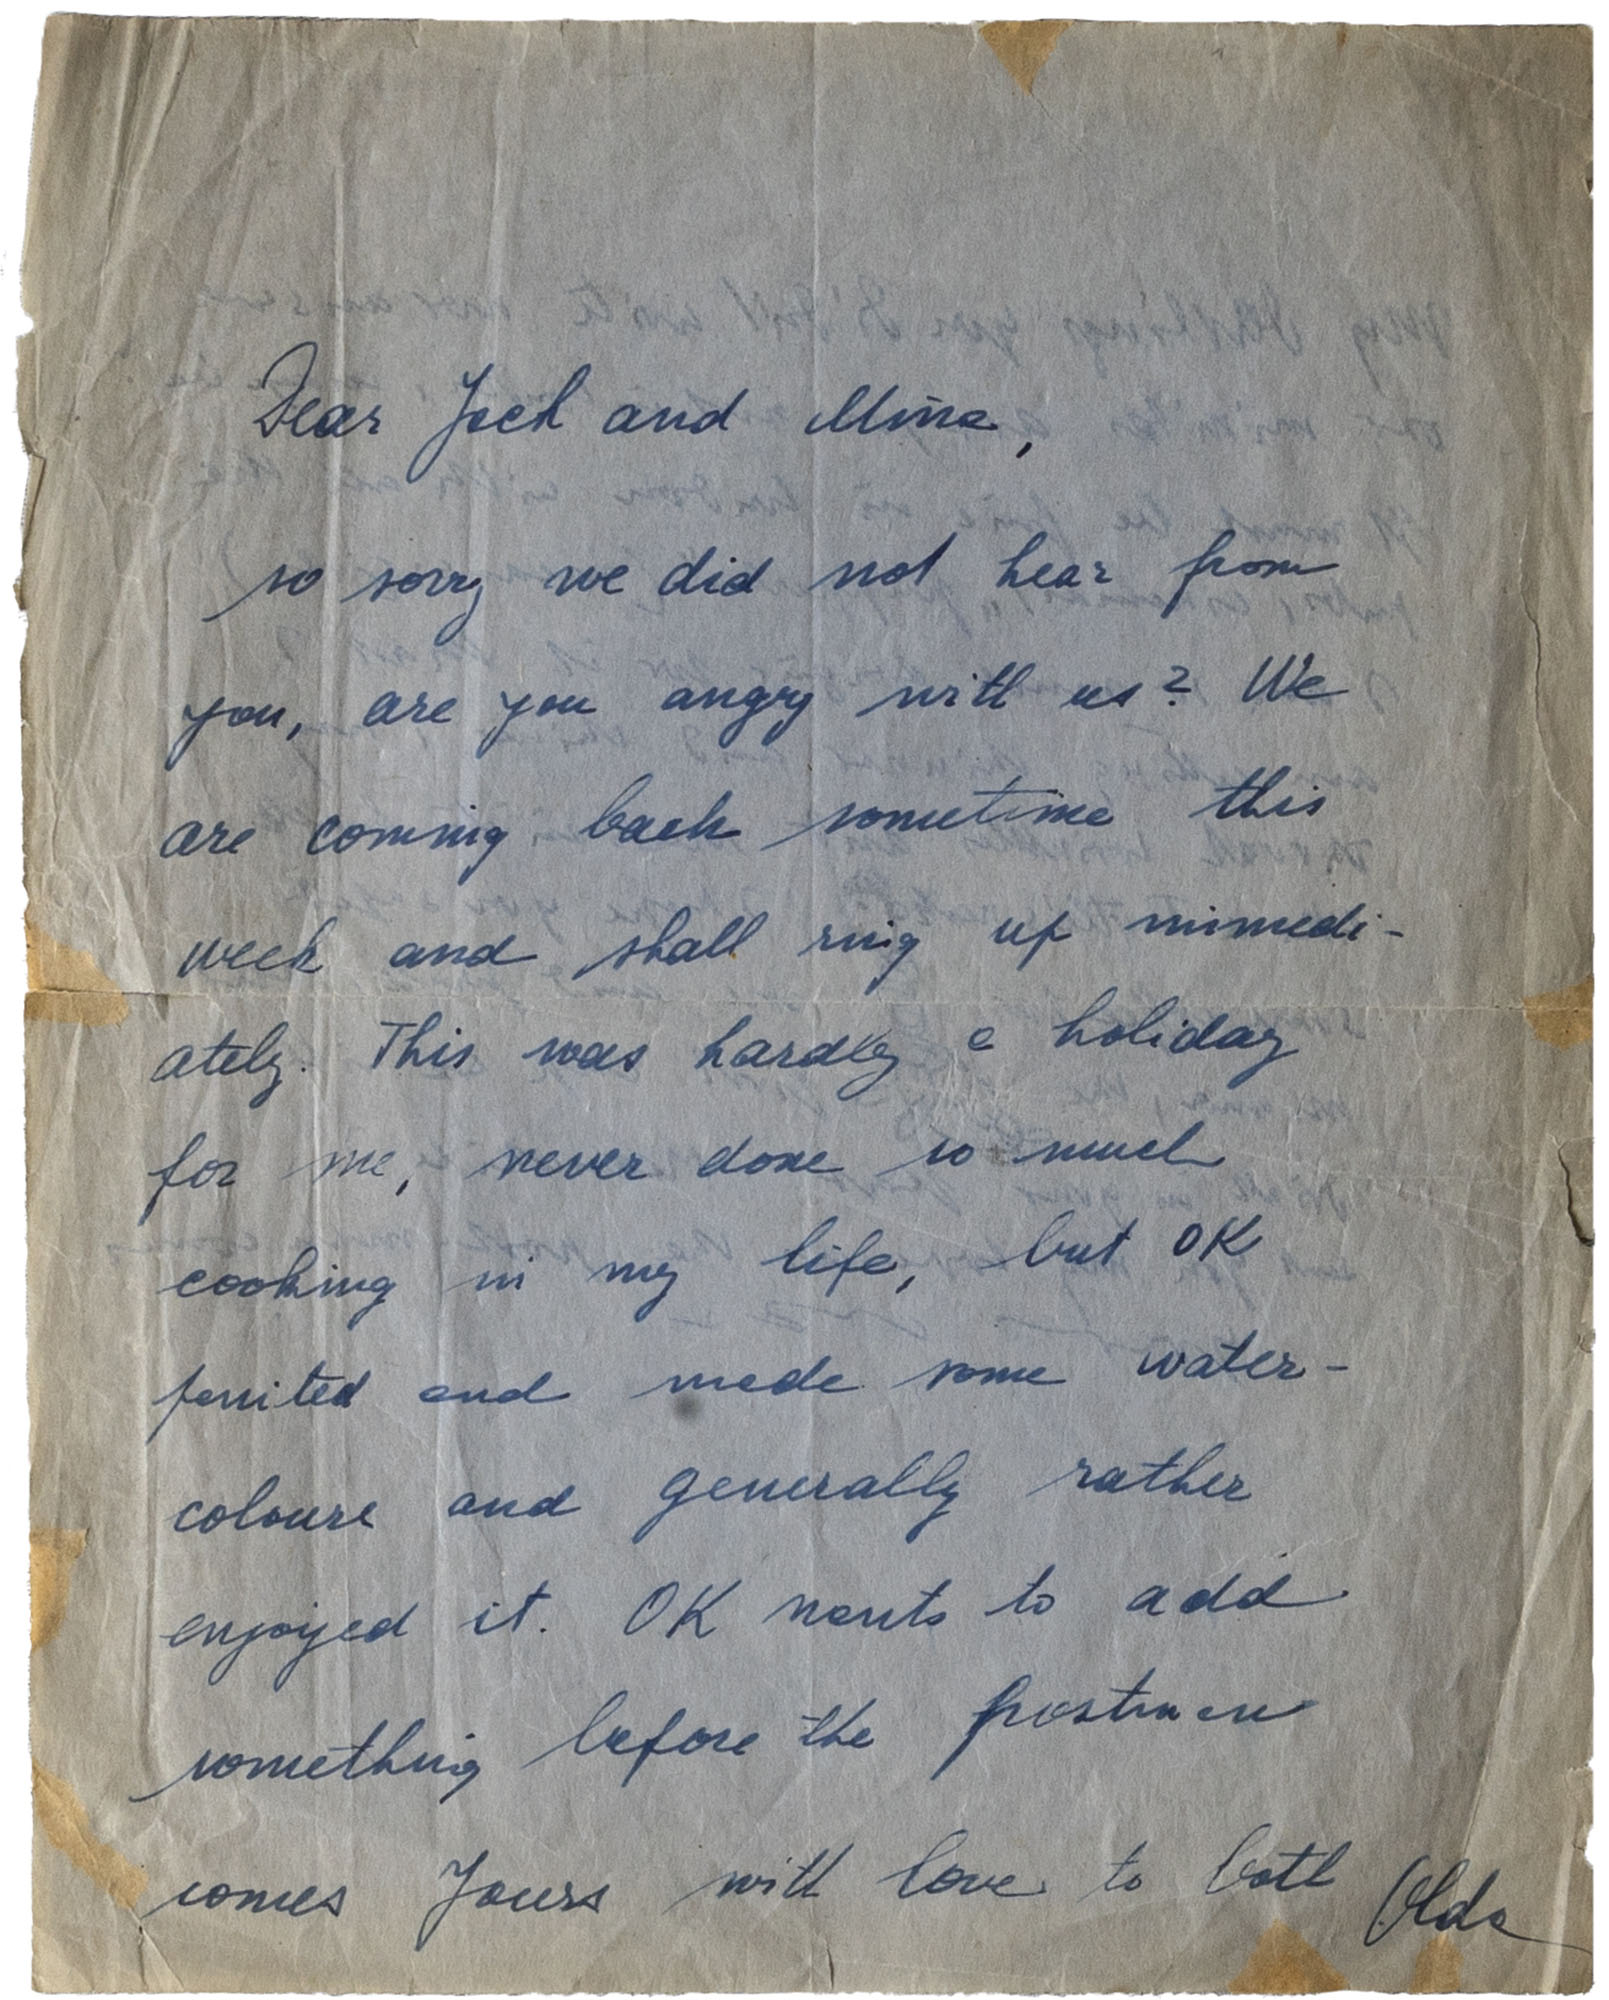 Dear Jack and Mina,
so sorry we did not hear from
you, are you angry with us? We
are coming back sometime this
week and shall ring up immedi-
ately. This was hardly a holiday
for me, never done so much
cooking in my life, but OK
painted and made some water-
colours and generally rather
enjoyed it. OK wants to add
something before the postman
comes Yours with love to both Olda